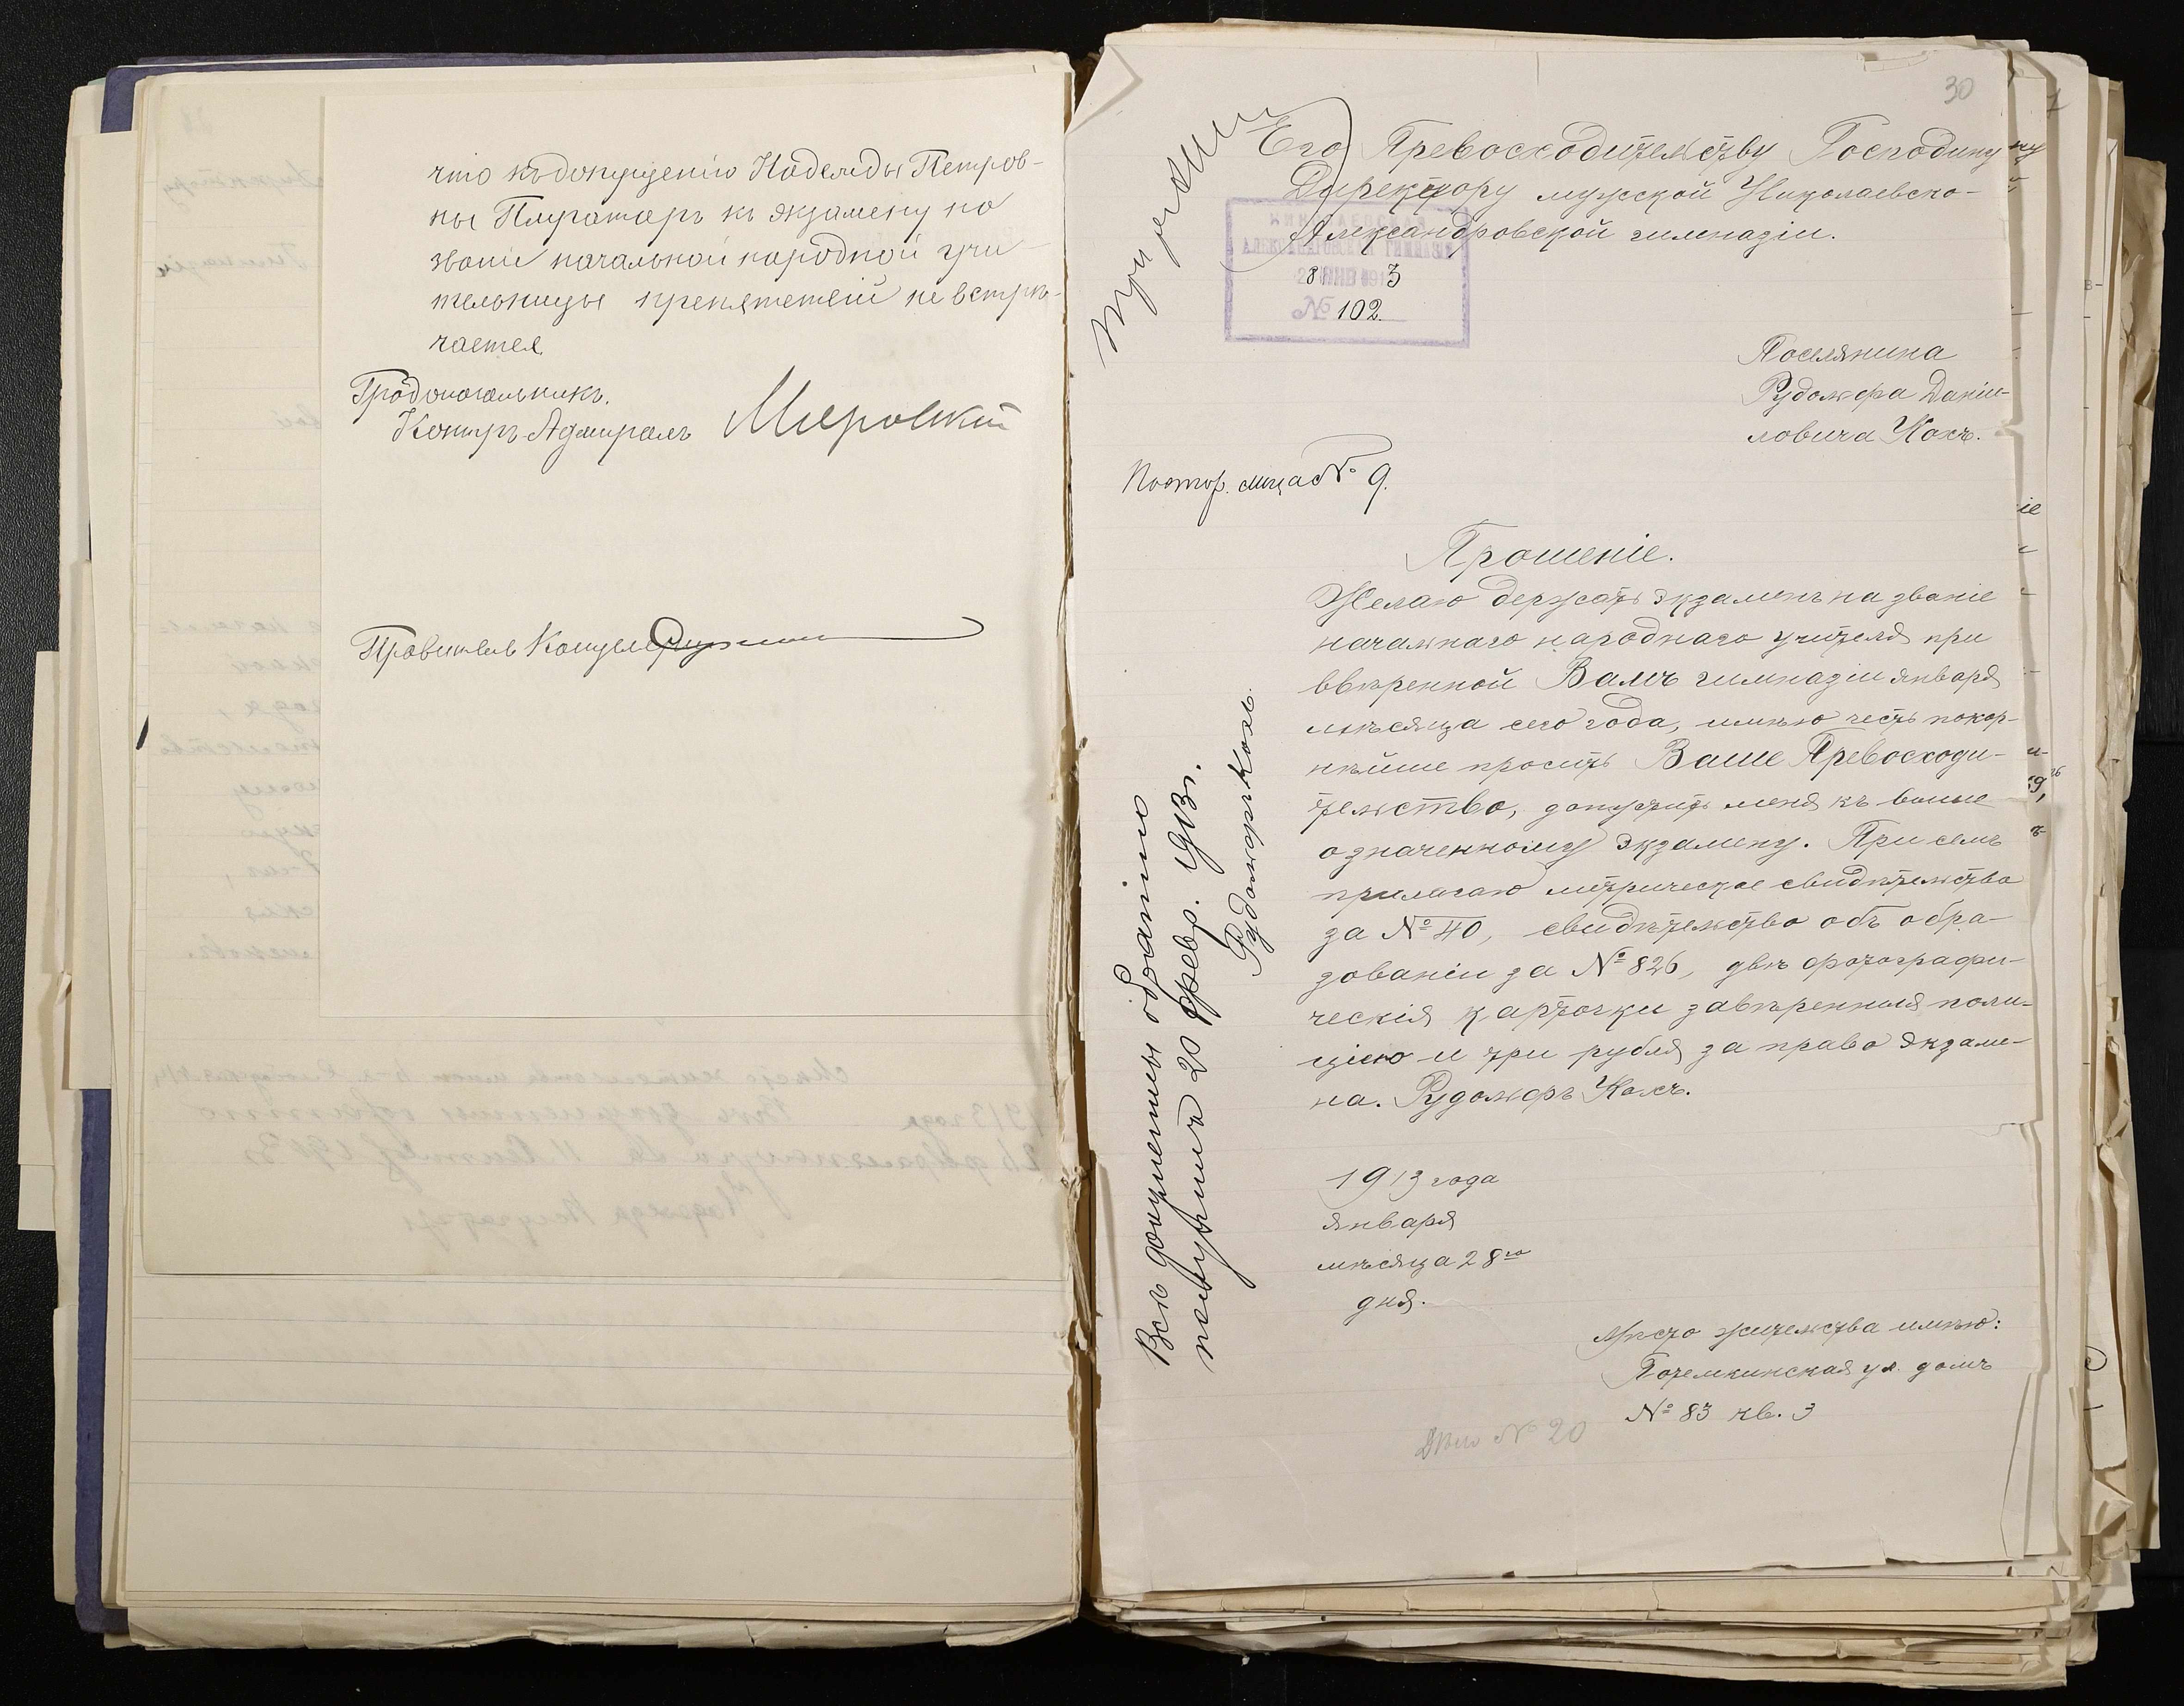 что къ допущенію Надежды Петров-
ны Плугатарь къ экзамену на
званіе начальной народной учи-
тельницы препятствій не встрѣ-
чается.
Градоначальникъ,
Контръ-Адмиралъ
Правитель Канцеляріи
30
Его Превосходительству Господину
Директору мужской Николаевско-
Александровской гимназіи.
НИКОЛАЕВСКАЯ
АЛЕКСАНДРОВСКАЯ ГИМНАЗІЯ
28 ЯНВ 1913
№ 102
Поселянина
Рудольфа Даніи-
ловича Кохъ.
Постор. лица № 9.
Прошеніе.
Желаю держать экзаменъ на званіе
начальнаго народнаго учителя при
ввѣренной Вамъ гимназіи января
мѣсяца сего года, имѣю честь покор-
нѣйше просить Ваше Превосходи-
тельство, допустить меня къ выше
означенному экзамену. При семъ
прилагаю метрическое свидѣтельство
за № 40, свидѣтельство объ обра-
зованіи за № 826, двѣ фотографи-
ческія карточки завѣренныя поли-
ціею и три рубля за право экзаме-
на. Рудольфъ Кохъ.
1913 года
января
мѣсяца 28го
дня.
Мѣсто жительства имѣю:
Потемкинская ул. домъ
№ 83 кв. 3
Дѣло № 20
Всѣ документы обратно
получилъ 20 февр. 1913 г.
Рудольфъ Кохъ.